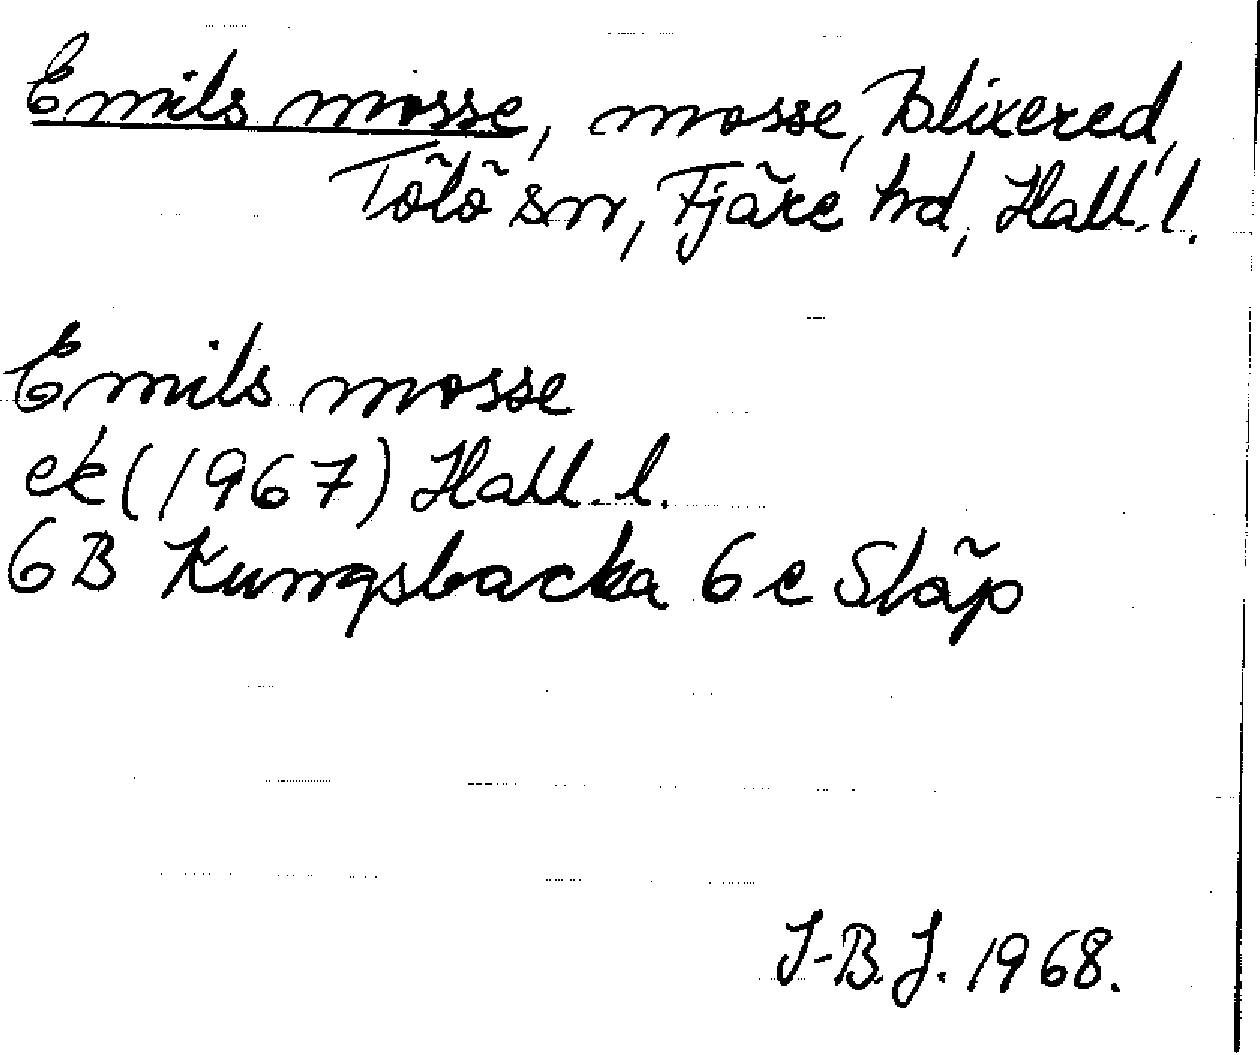 Emils mosse, mosse, Blixered,
Tölö sn, Fjäre hd, Hall. l.
Emils mosse
ek (1967) Hall. l.
6B Kungsbacka 6e Släp
I-B. J. 1968.